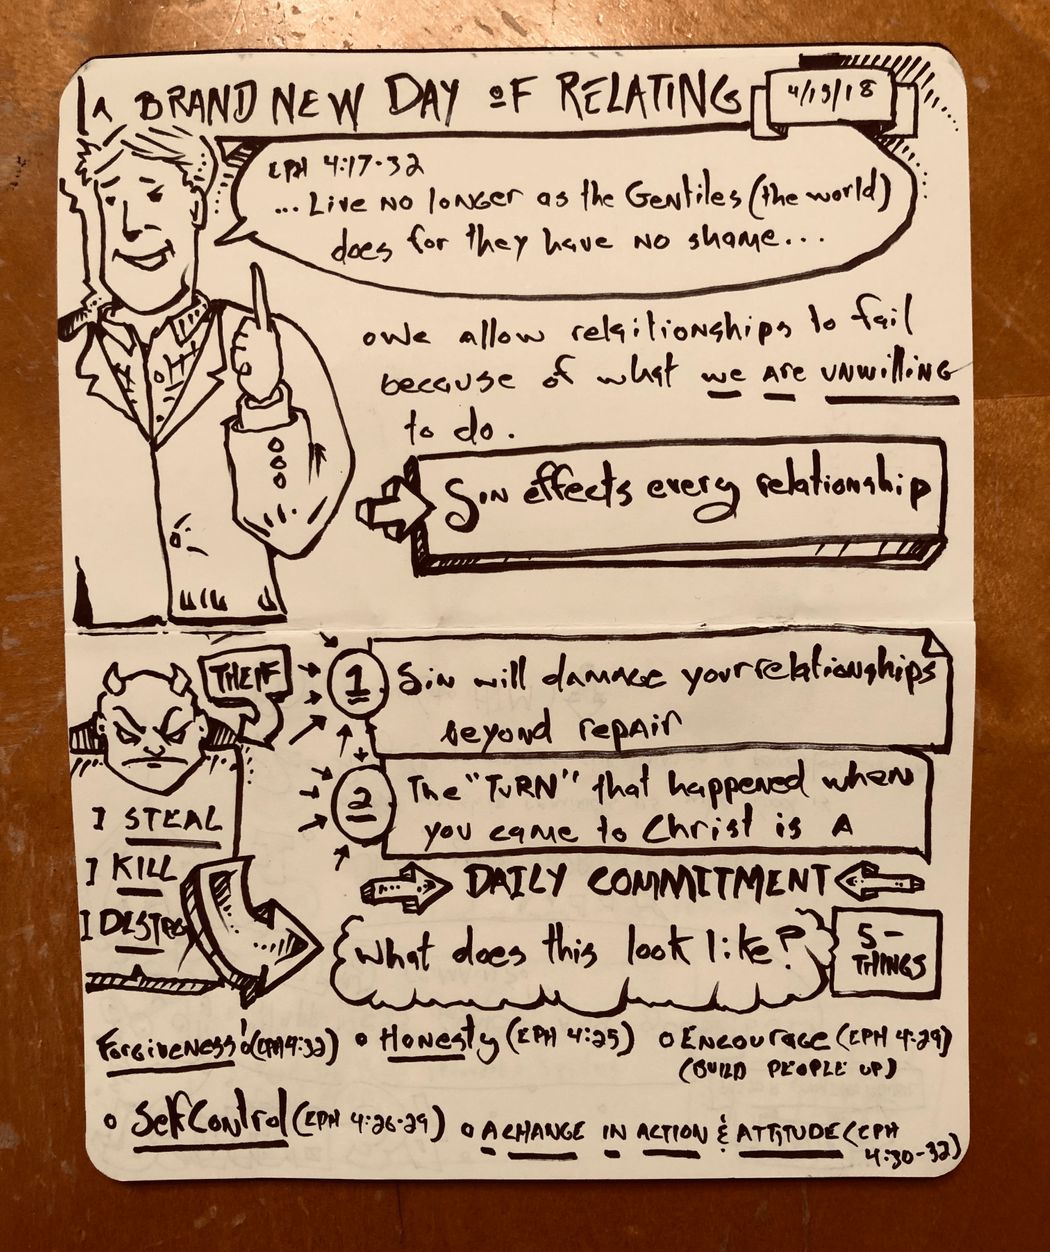 A BRAND NEW DAY OF RELATING
4/15/18
EPH 4:17-32
... Live NO longer as the Gentiles (the world)
does for they have NO shame...
owe allow relaitionships to fail
because of what we are UNWilliNG
to do.
Sin effects every relationship
THEIF
1 Sin will damage your relationships
beyond repair
2 The "TURN" that happened when
you came to Christ is A
DAILY COMMITMENT
I STEAL
I KILL
I DESTRO
What does this look like?
5-
THINGS
Forgiveness! (EPH 4:32) o Honesty (EPH 4:25) o Encourage (EPH 4:29)
(BUILD PEOPLE UP)
o Self Control (EPH 4:26-29) o A CHANGE IN ACTION & ATTITUDE (EPH
4:30-32)